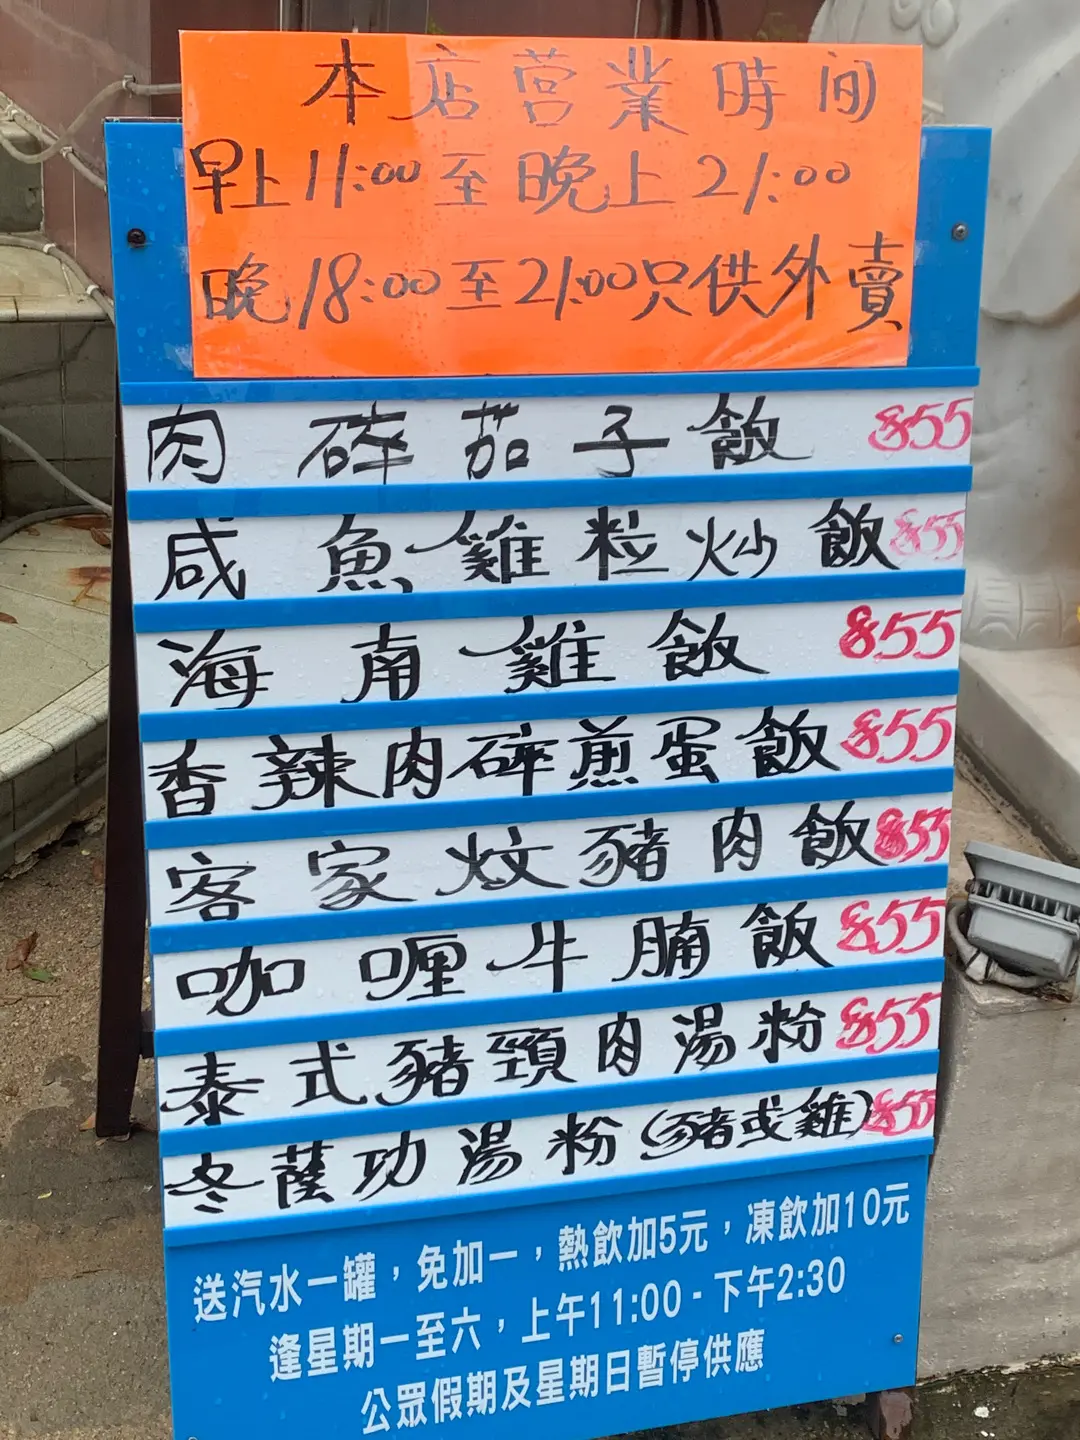 本店营業時间
早上11:00至晚上21:00
晚18:00至21:00只供外賣
肉碎茄子飯 $55
咸魚雞粒炒飯 $55
海南雞飯 $55
香辣肉碎煎蛋飯 $55
客家炆豬肉飯 $55
咖喱牛腩飯 $55
泰式豬頸肉湯粉 $55
冬蔭功湯粉(豬或雞) $55
送汽水一罐，免加一，熱飲加5元，凍飲加10元
逢星期一至六，上午11:00 - 下午2:30
公眾假期及星期日暫停供應